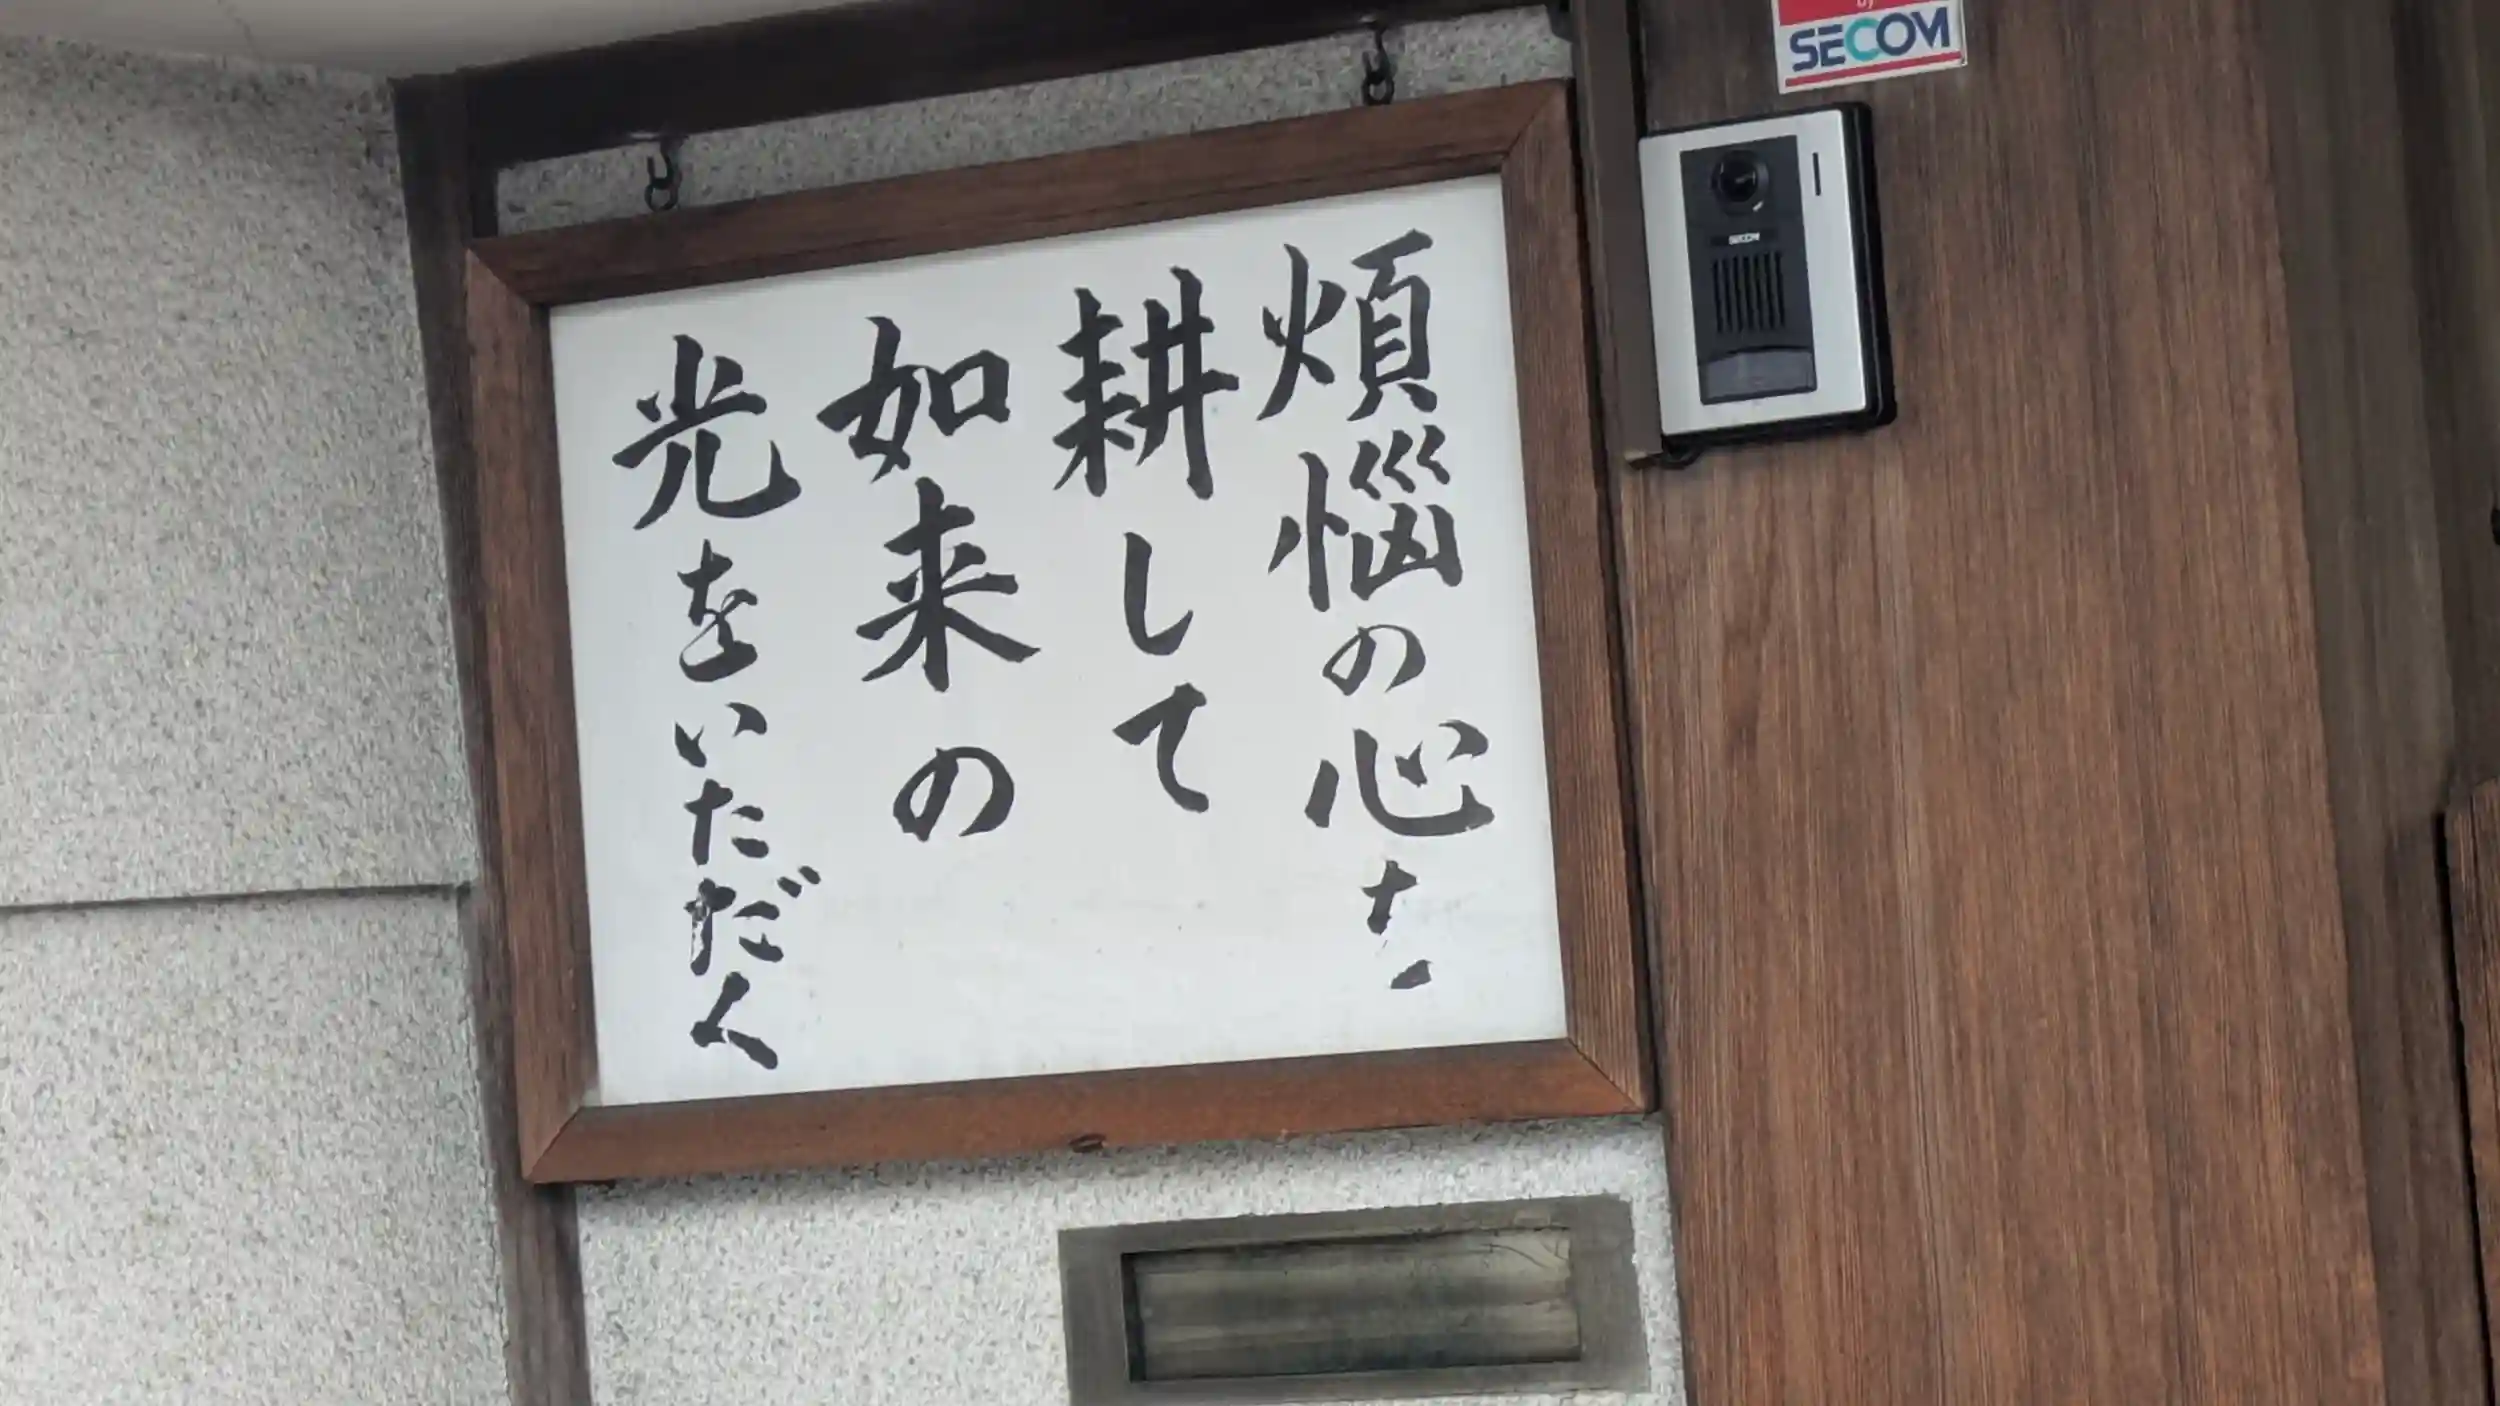 煩悩の心を
耕して
如来の
光をいただく
by
SECOM
SECOM